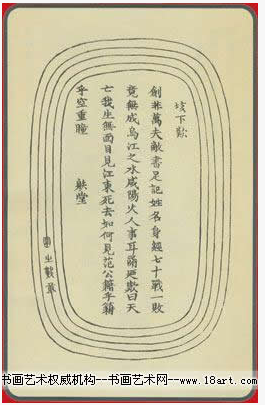 垓下歎
劍非萬夫敵書足記姓名身經七十戰一敗
竟無成烏江之水咸陽火人事耳歎曰天
亡我生無面目見江東死去如何見范公籍乎籍
乎空重瞳 堂
书画艺术权威机构--书画艺术网--www.18art.com